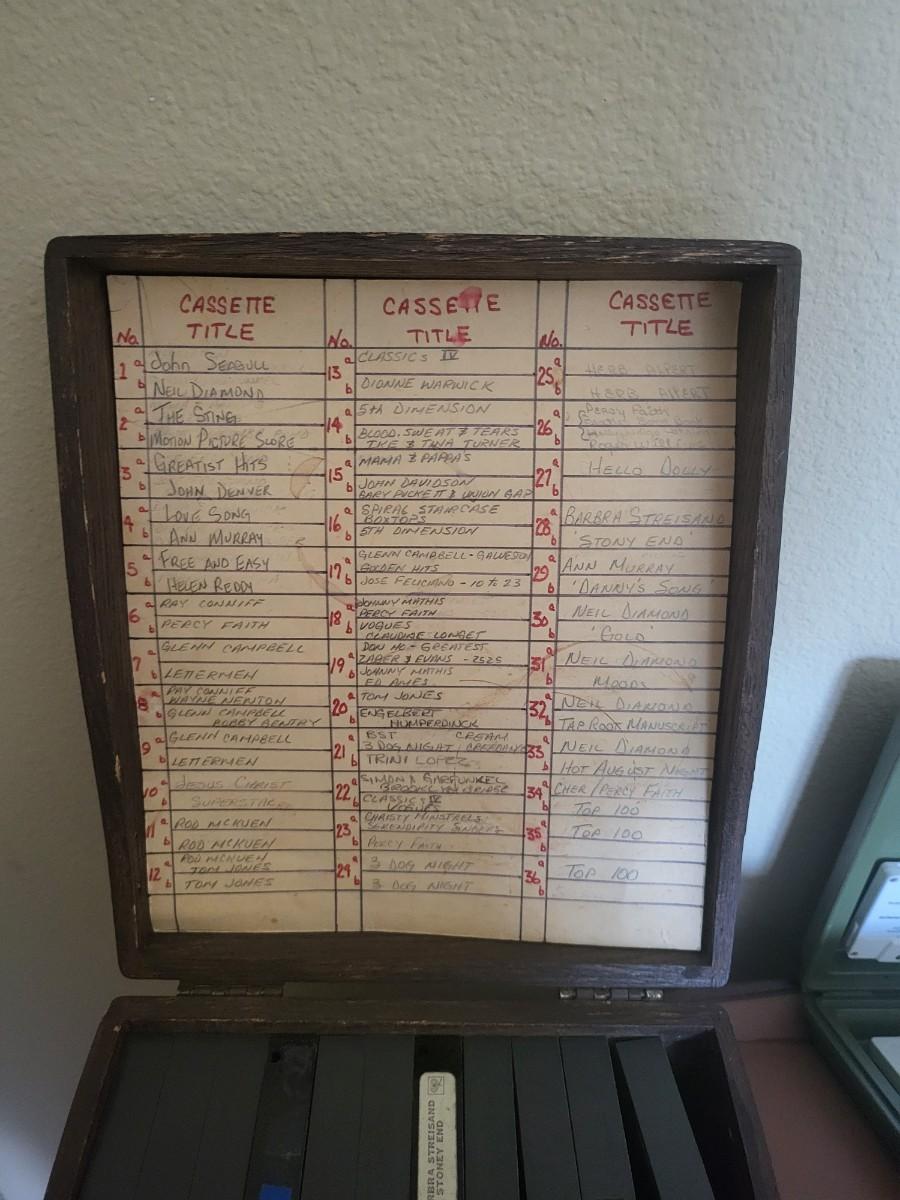 CASSETTE
TITLE
No.
1 a John Seagull
b NEIL DIAMOND
2 a THE STING
b MOTION PICTURE SCORE
3 a GREATIST HITS
b JOHN DENVER
4 a LOVE SONG
b ANN MURRAY
5 a FREE AND EASY
b HELEN REDDY
6 a RAY CONNIFF
b PERCY FAITH
7 a GLENN CAMPBELL
b LETTERMEN
8 a RAY CONNIFF
WAYNE NEWTON
b GLENN CAMPBELL
BOBBY GENTRY
9 a GLENN CAMPBELL
b LETTERMEN
10 a JESUS CHRIST
b SUPERSTAR
11 a ROD MCKUEN
b ROD MCKUEN
12 a ROD MCKUEN
TOM JONES
b TOM JONES
CASSETTE
TITLE
No.
13 a CLASSICS IV
b DIONNE WARWICK
14 a 5th DIMENSION
b BLOOD, SWEAT & TEARS
IKE & TINA TURNER
15 a MAMA & PAPPA'S
b JOHN DAVIDSON
GARY PUCKETT & UNION GAP
16 a SPIRAL STAIRCASE
BOXTOPS
b 5TH DIMENSION
17 a GLENN CAMPBELL - GALVESON
GOLDEN HITS
b JOSE FELICIANO - 10 to 23
18 a JOHNNY MATHIS
PERCY FAITH
b VOGUES
CLAUDINE LONGET
19 a DON HO - GREATEST
ZAGER & EVANS - 2525
b JOHNNY MATHIS
ED AMES
20 a TOM JONES
b ENGELBERT
HUMPERDINCK
21 a BST CREAM
3 DOG NIGHT / CREEDANCE
b TRINI LOPEZ
22 a SIMON & GARFUNKEL
BROOKLYN BRIDGE
b CLASSIC IV
VOGUES
23 a CHRISTY MINSTRELS
SERENDIPITY SINGERS
b PERCY FAITH
24 a 3 DOG NIGHT
b 3 DOG NIGHT
CASSETTE
TITLE
No.
25 a HERB ALPERT
b HERB ALPERT
26 a Percy Faith
b Roger Williams
27 a HELLO DOLLY
b
28 a BARBRA STREISAND
b 'STONY END'
29 a ANN MURRAY
b 'DANNY'S SONG'
30 a NEIL DIAMOND
b 'GOLD'
31 a NEIL DIAMOND
b MOODS
32 a NEIL DIAMOND
b TAP ROOT MANUSCRIPT
33 a NEIL DIAMOND
b HOT AUGUST NIGHT
34 a CHER/PERCY FAITH
b TOP 100
35 a TOP 100
b
36 a TOP 100
b
RBRA STREISAND
STONEY END